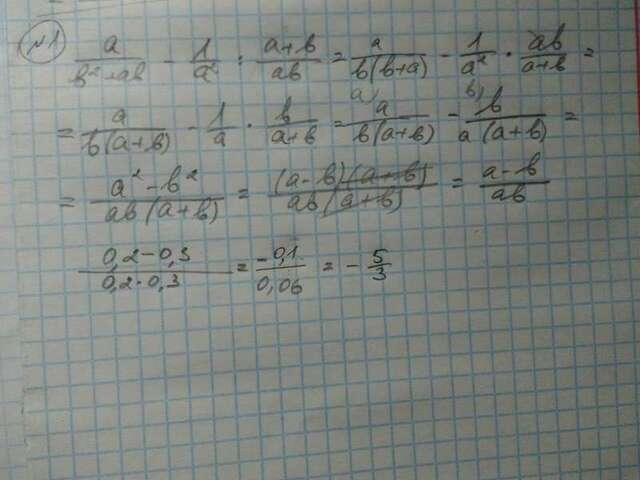 №1 a/(b²+ab) - 1/a² : (a+b)/(ab) = a/(b(b+a)) - 1/a² · (ab)/(a+b) =
= a/(b(a+b)) - 1/a · b/(a+b) = a) a/(b(a+b)) - b) b/(a(a+b)) =
= (a²-b²)/(ab(a+b)) = ((a-b)(a+b))/(ab(a+b)) = (a-b)/(ab)
(0,2-0,3)/(0,2·0,3) = (-0,1)/(0,06) = -5/3